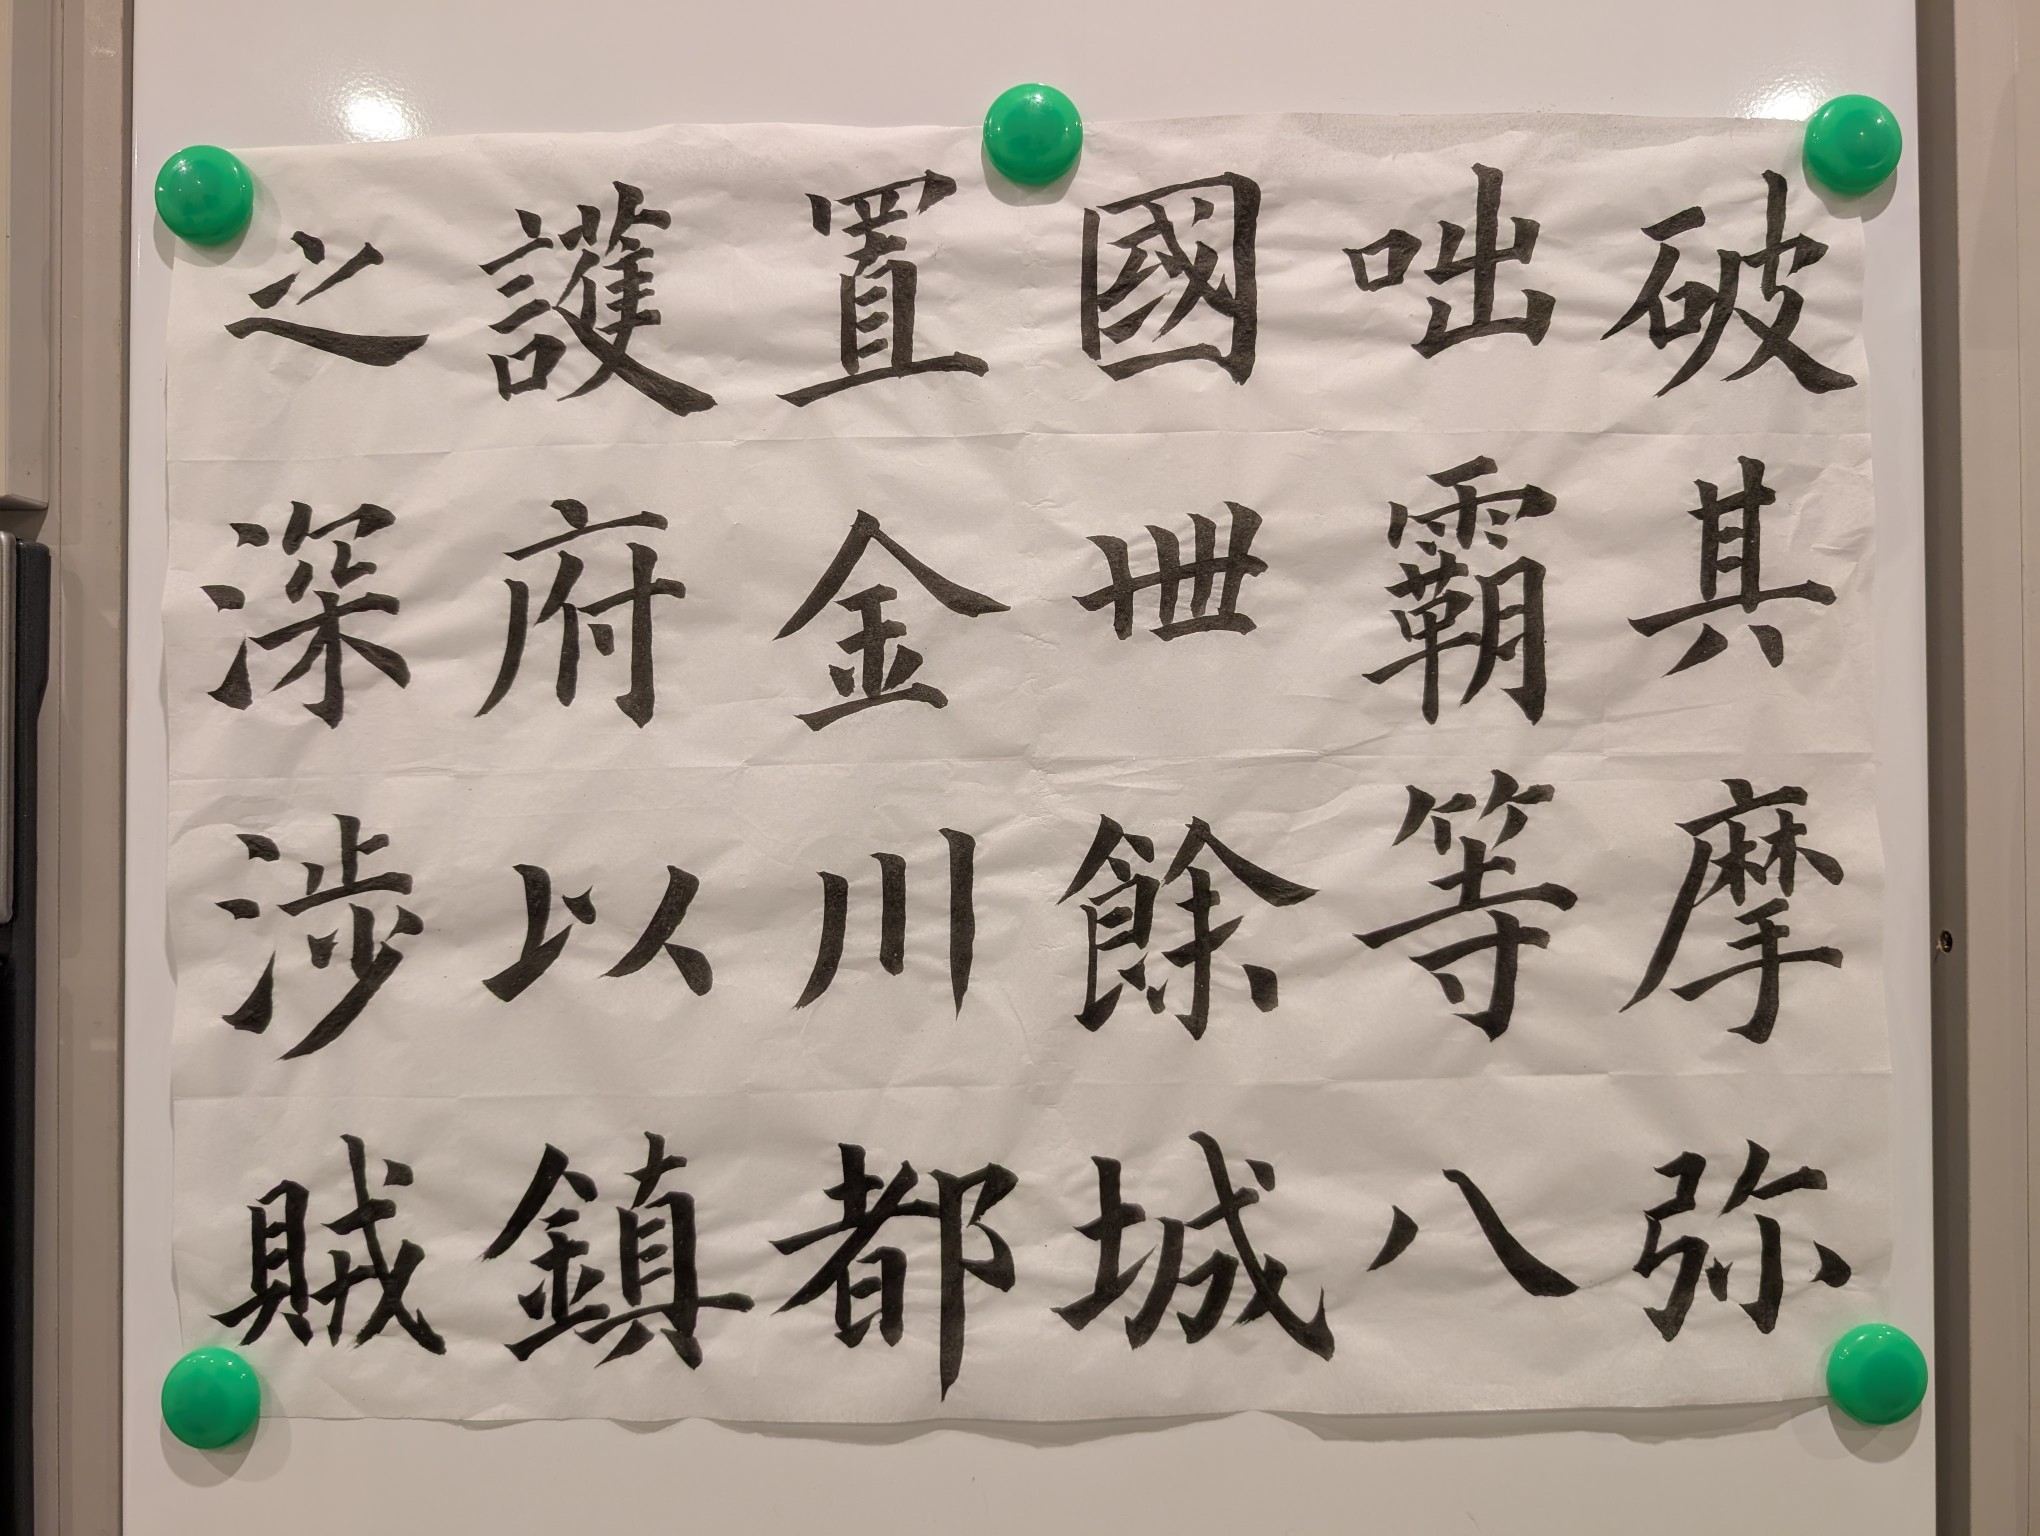 破其摩弥
咄霸等八
國丗餘城
置金川都
護府以鎮
之深涉賊